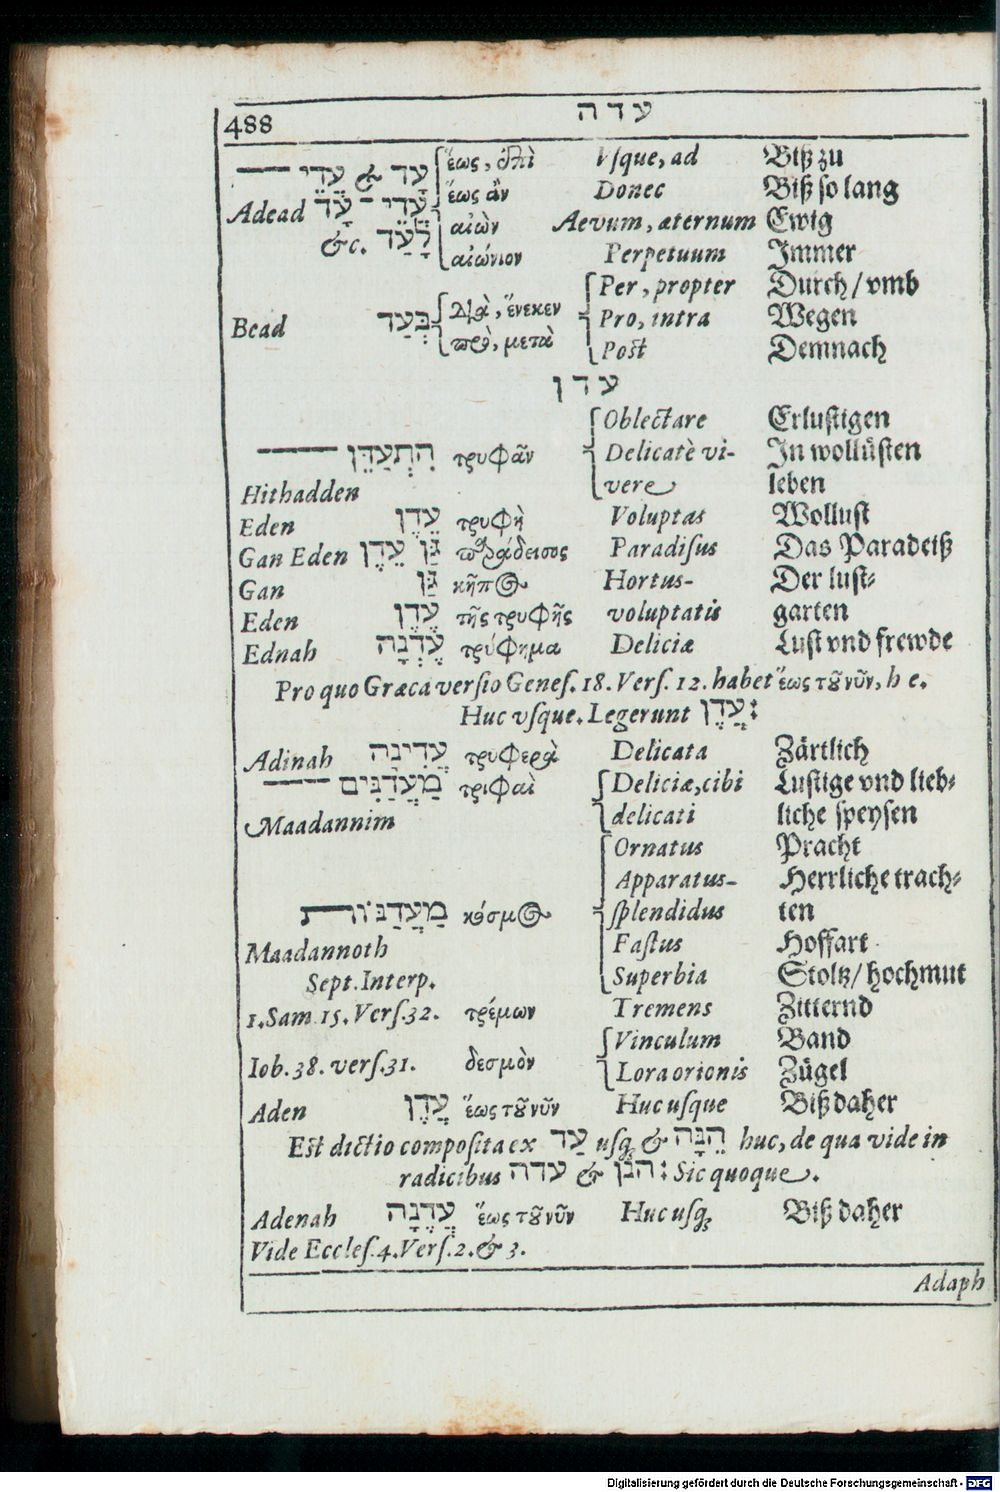 488 עדה
—— עַד & עֲדֵי ἕως, ἐπὶ Vsque, ad Biß zu
Adead עֲדֵי־עַד ἕως ἂν Donec Biß so lang
&c. לָעַד αἰὼν Aevum, æternum Ewig
αἰώνιον Perpetuum Immer
Per, propter Durch/ vmb
Bead בְּעַד διὰ, ἕνεκεν Pro, intra Wegen
πρὸ, μετὰ Post Demnach
עדן
Oblectare Erlustigen
—— הִתְעַדֵּן τρυφᾶν Delicatè vi- In wollüsten
Hithadden vere leben
Eden עֵדֶן τρυφὴ Voluptas Wollust
Gan Eden גַּן עֵדֶן παράδεισος Paradisus Das Paradeiß
Gan גַּן κῆπος Hortus- Der lust-
Eden עֵדֶן τῆς τρυφῆς voluptatis garten
Ednah עֶדְנָה τρύφημα Deliciæ Lust vnd frewde
Pro quo Græca versio Genes. 18. Vers. 12. habet ἕως τοῦ νῦν, h e.
Huc vsque. Legerunt עֲדֶן:
Adinah עֲדִינָה τρυφερὰ Delicata Zärtlich
—— מַעֲדַנִּים τριφαὶ Deliciæ, cibi Lustige vnd lieb-
Maadannim delicati liche speysen
Ornatus Pracht
Apparatus- Herrliche trach-
מַעֲדַנּוֹת κόσμος splendidus ten
Maadannoth Fastus Hoffart
Sept. Interp. Superbia Stoltz/ hochmut
1. Sam 15. Vers. 32. τρέμων Tremens Zitternd
Vinculum Band
Iob. 38. vers. 31. δεσμὸν Lora orionis Zügel
Aden עֲדֶן ἕως τοῦ νῦν Huc usque Biß daher
Est dictio composita ex עַד usq; & הֵנָּה huc, de qua vide in
radicibus עדה & הנן: Sic quoque.
Adenah עֲדֶנָה ἕως τοῦ νῦν Huc usq; Biß daher
Vide Eccles. 4. Vers. 2. & 3.
Adaph
Digitalisierung gefördert durch die Deutsche Forschungsgemeinschaft - DFG